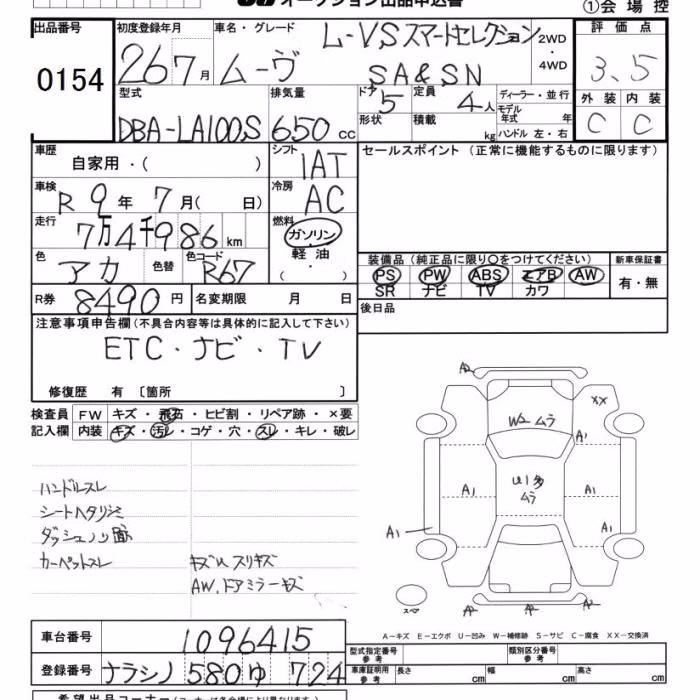 オークション出品申込書 ①会場控
出品番号 初度登録年月 車名・グレード 評価点
0154 26 7月 ムーヴ L-VSスマートセレクション SA&SN 2WD・4WD 3.5
型式 排気量 ドア 定員 ディーラー・並行 外装 内装
DBA-LA100S 650cc 5 4人 モデル年式 年 C C
形状 積載 kg ハンドル 左・右
車歴 自家用・( ) シフト IAT セールスポイント (正常に機能するものに限ります)
車検 R 9年 7月( 日) 冷房 AC
走行 7万4千986km 燃料 ガソリン・軽油・( )
色 アカ 色替 色コード R67
装備品 (純正品に限り○をつけてください) 新車保証書
PS PW ABS エアB AW 有・無
SR ナビ TV カワ
R券 8490円 名変期限 月 日 後日品
注意事項申告欄(不具合内容等は具体的に記入して下さい)
ETC・ナビ・TV
修復歴 有 〔箇所 〕
検査員 FW キズ・飛石・ヒビ割・リペア跡・×要
記入欄 内装 キズ・汚レ・コゲ・穴・スレ・キレ・破レ
ハンドルスレ
シートヘタリシミ
ダッシュノリ跡
カーペットスレ キズUスリキズ
AW.ドアミラーキズ
A2
XX
W2 ムラ
A1
U1多
ムラ
A1 A1
A1 A1
スペア A2 A2
A-キズ E-エクボ U-凹み W-補修跡 S-サビ C-腐食 XX-交換済
車台番号 1096415
型式指定番号 参考 類別区分番号 参考
登録番号 ナラシノ 580 ゆ 724
車庫証明用 参考 長さ cm 幅 cm 高さ cm